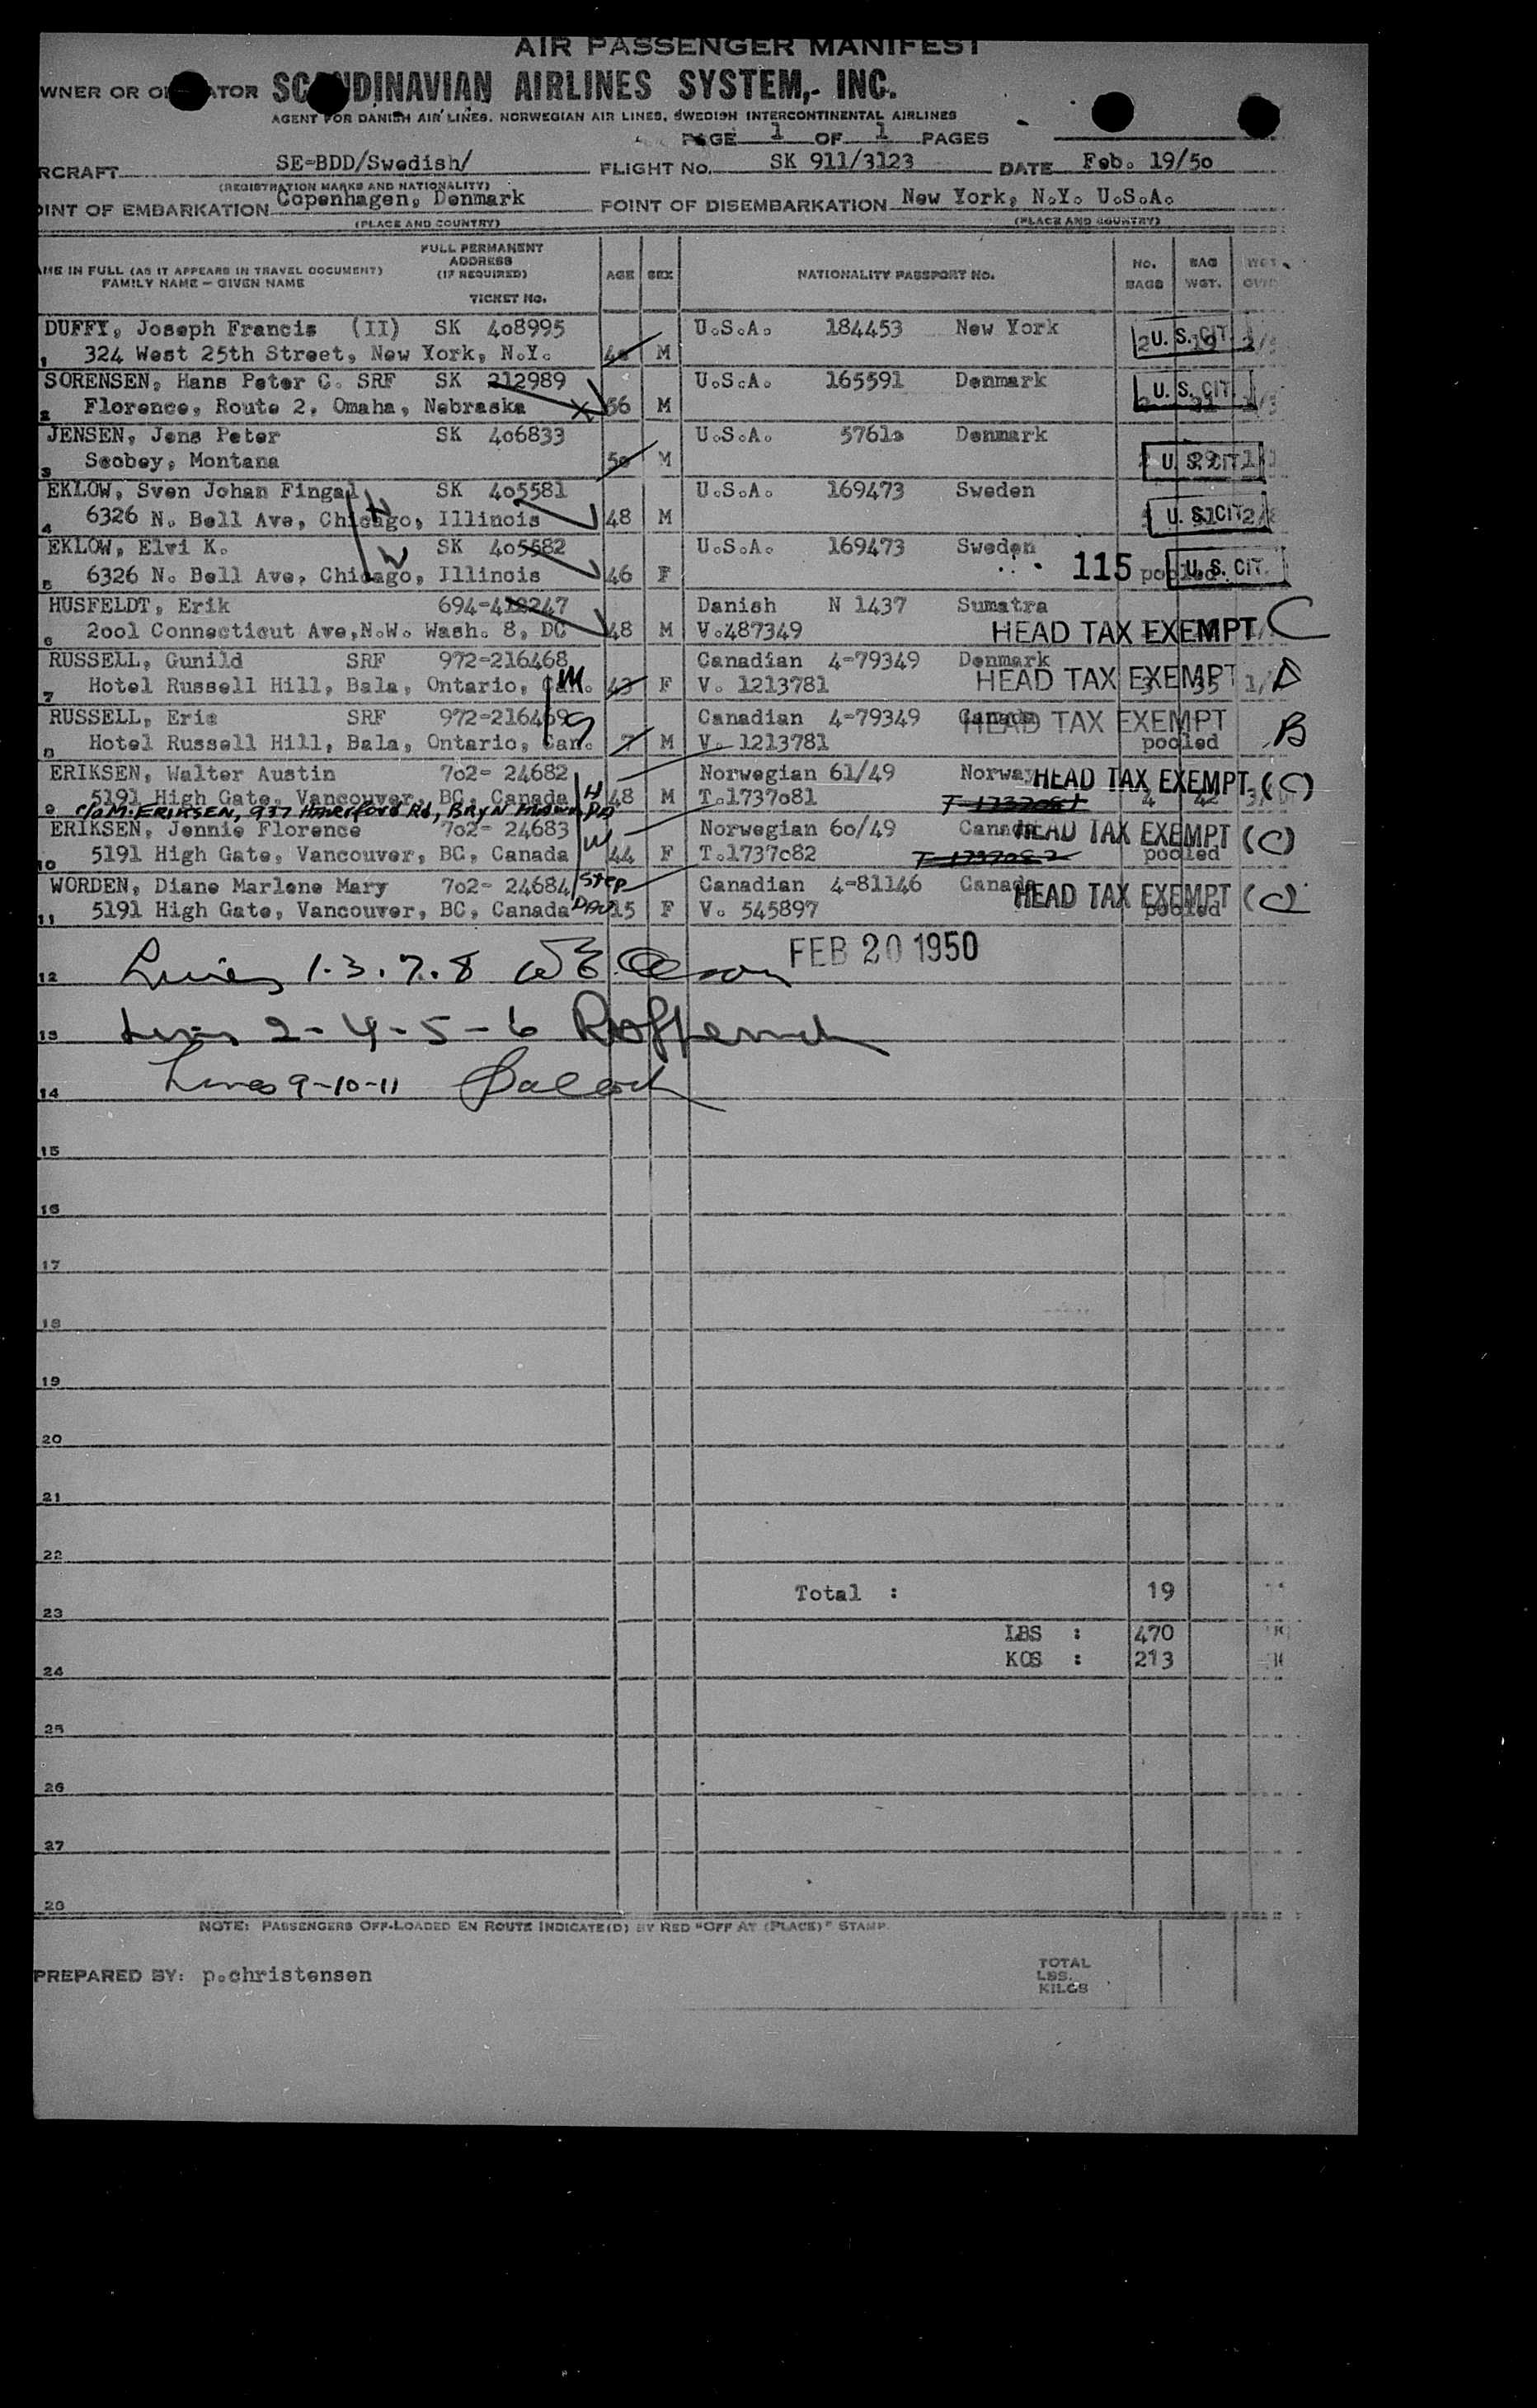 AIR PASSENGER MANIFEST
WNER OR OPERATOR SCANDINAVIAN AIRLINES SYSTEM, INC.
AGENT FOR DANISH AIR LINES, NORWEGIAN AIR LINES, SWEDISH INTERCONTINENTAL AIRLINES
PAGE 1 OF 1 PAGES
RCRAFT SE-BDD/Swedish/ FLIGHT NO. SK 911/3123 DATE Feb. 19/50
(REGISTRATION MARKS AND NATIONALITY)
OINT OF EMBARKATION Copenhagen, Denmark POINT OF DISEMBARKATION New York, N.Y. U.S.A.
(PLACE AND COUNTRY) (PLACE AND COUNTRY)
AME IN FULL (AS IT APPEARS IN TRAVEL DOCUMENT) FAMILY NAME - GIVEN NAME FULL PERMANENT ADDRESS (IF REQUIRED) TICKET NO. AGE SEX NATIONALITY PASSPORT NO. NO. BAGS BAG WGT. WGT.
DUFFY, Joseph Francis (II) SK 408995 U.S.A. 184453 New York U. S. CIT.
1 324 West 25th Street, New York, N.Y. M
SORENSEN, Hans Peter C. SRF SK 212989 U.S.A. 165591 Denmark U. S. CIT.
2 Florence, Route 2, Omaha, Nebraska X 56 M
JENSEN, Jens Peter SK 406833 U.S.A. 5761o Denmark
3 Scobey, Montana 5o M U. S. CIT.
EKLOW, Sven Johan Fingal SK 405581 U.S.A. 169473 Sweden
4 6326 N. Bell Ave, Chicago, Illinois H 48 M U. S. CIT.
EKLOW, Elvi K. SK 405582 U.S.A. 169473 Sweden
5 6326 N. Bell Ave, Chicago, Illinois W 46 F 115 pooled U. S. CIT.
HUSFELDT, Erik 694-412247 Danish N 1437 Sumatra
6 2oo1 Connecticut Ave,N.W. Wash. 8, DC 48 M V.487349 HEAD TAX EXEMPT C
RUSSELL, Gunild SRF 972-216468 Canadian 4-79349 Denmark
7 Hotel Russell Hill, Bala, Ontario, Can. M 43 F V. 1213781 HEAD TAX EXEMPT 35
RUSSELL, Eric SRF 972-216469 S Canadian 4-79349 Canada HEAD TAX EXEMPT
8 Hotel Russell Hill, Bala, Ontario, Can. 7 M V. 1213781 pooled B
ERIKSEN, Walter Austin 7o2- 24682 Norwegian 61/49 Norway HEAD TAX EXEMPT (C)
9 5191 High Gate, Vancouver, BC, Canada H 48 M T.1737o81 T-1737081 4 42
c/o M. ERIKSEN, 937 Rd, BRYN MAWR, PA
ERIKSEN, Jennie Florence 7o2- 24683 W Norwegian 6o/49 Canada HEAD TAX EXEMPT (C)
10 5191 High Gate, Vancouver, BC, Canada 44 F T.1737c82 T-1737082 pooled
WORDEN, Diane Marlene Mary 7o2- 24684 Step Canadian 4-81146 Canada HEAD TAX EXEMPT (C)
11 5191 High Gate, Vancouver, BC, Canada DAU 15 F V. 545897 pooled
FEB 20 1950
12 Lines 1.3.7.8
13 Lines 2-4-5-6
14 Lines 9-10-11
15
16
17
18
19
20
21
22
Total : 19
23
LBS : 470
KGS : 213
24
25
26
27
28
NOTE: PASSENGERS OFF-LOADED EN ROUTE INDICATE(D) BY RED "OFF AT (PLACE)" STAMP.
PREPARED BY: p.christensen TOTAL
LBS.
KILOS